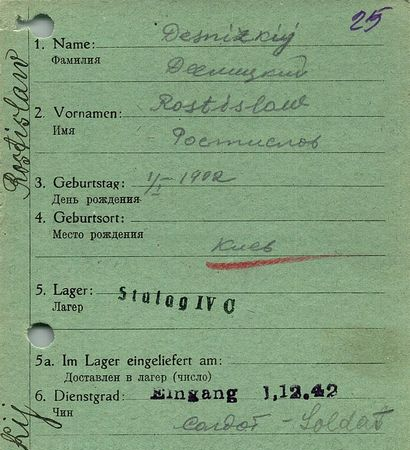 25
1. Name: Desnizkij
Фамилия Десницкий
2. Vornamen: Rostislaw
Имя Ростислов
3. Geburtstag: 1/I - 1902
День рождения
4. Geburtsort:
Место рождения
Киев
5. Lager: Stalag IV C
Лагер
5a. Im Lager eingeliefert am:
Доставлен в лагер (число)
6. Dienstgrad: Eingang 1.12.42
Чин Солдат - Soldat
Rostislaw
kij